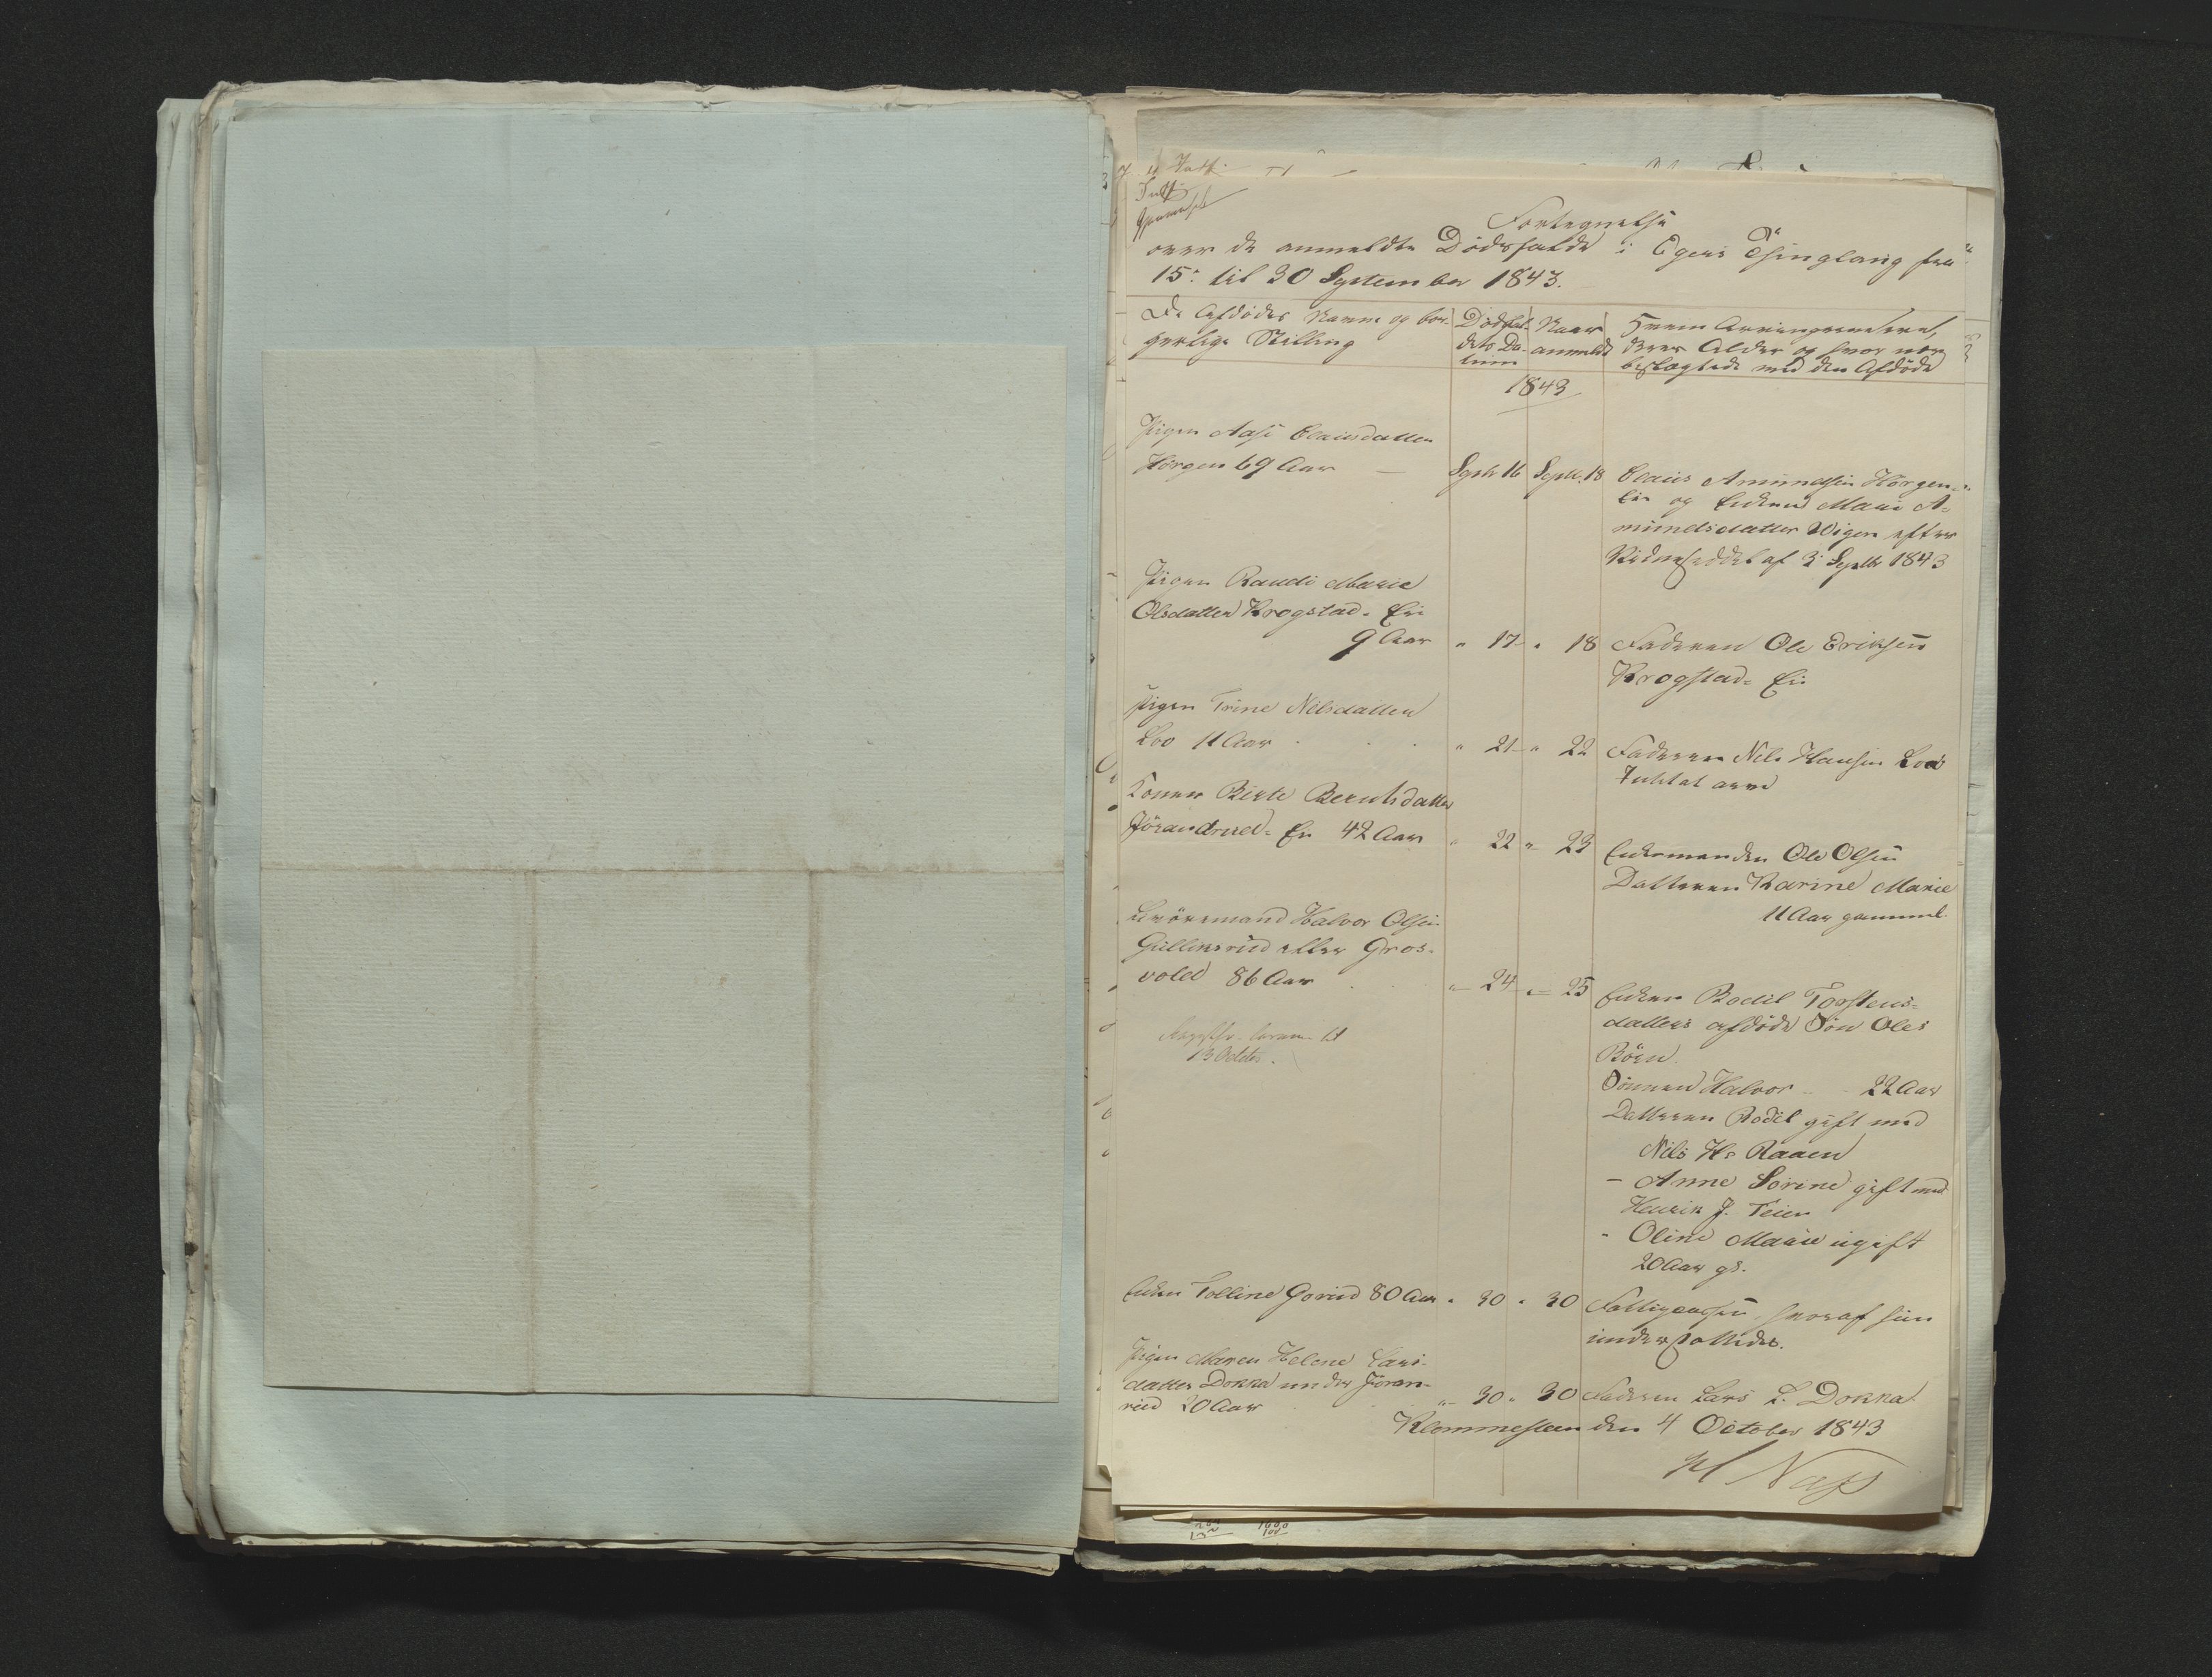 Fortegnelse
over de anmeldte Dødsfalde i Egers Thinglaug fra
15de til 30 September 1843.
De Afdødes Navne og bor-
gerlige Stilling
Dødsfal-
dets Da-
tum
Naar
anmeldt
Hvem Arvingerne ere,
deres Alder og hvor nær
beslægtede med den Afdøde
1843
Pigen Aase Clausdatter
Horgen 69 Aar — Septr 16 Septr. 18
Claus Amundsen Horgen-
Eie og Enken Marie A-
mundsdatter Wigen efter
Skiftesedel af 3 Septbr 1843
Pigen Randi Marie
Olsdatter Krogstad- Eie
9 Aar " 17 " 18
Faderen Ole Eriksen
Krogstad- Eie
Pigen Trine Nilsdatter
Loe 11 Aar " 21 " 22
Faderen Nils Hansen Loe
Intet at arve
Konen Birte Berntsdatter
Jörandrud- Eie 42 Aar " 22 " 23
Enkemanden Ole Olsen
Datteren Karine Marie
11 Aar gammel
Halvor Olsen
Gullikerud eller Gros-
vold 86 Aar " 24 " 25
Enken Bodil Torstens-
datters afdøde Søn Oles
Börn
Sönnen Halvor 22 Aar
Datteren Bodil gift med
Nils H. Raaen
— Anne Sörine gift med
Henrik J. Teien
" Oline Marie ugift
20 Aar gl.
13 Octbr.
Enken Tolline Gorud 80 Aar " 30 " 30
Fattigcassen, hvoraf hun
understøttedes.
Pigen Maren Helene Lars-
datter Dokka under Jöran-
rud 20 Aar " 30 " 30
Faderen Lars L. Dokka
Klommesteen den 4 October 1843
Næss